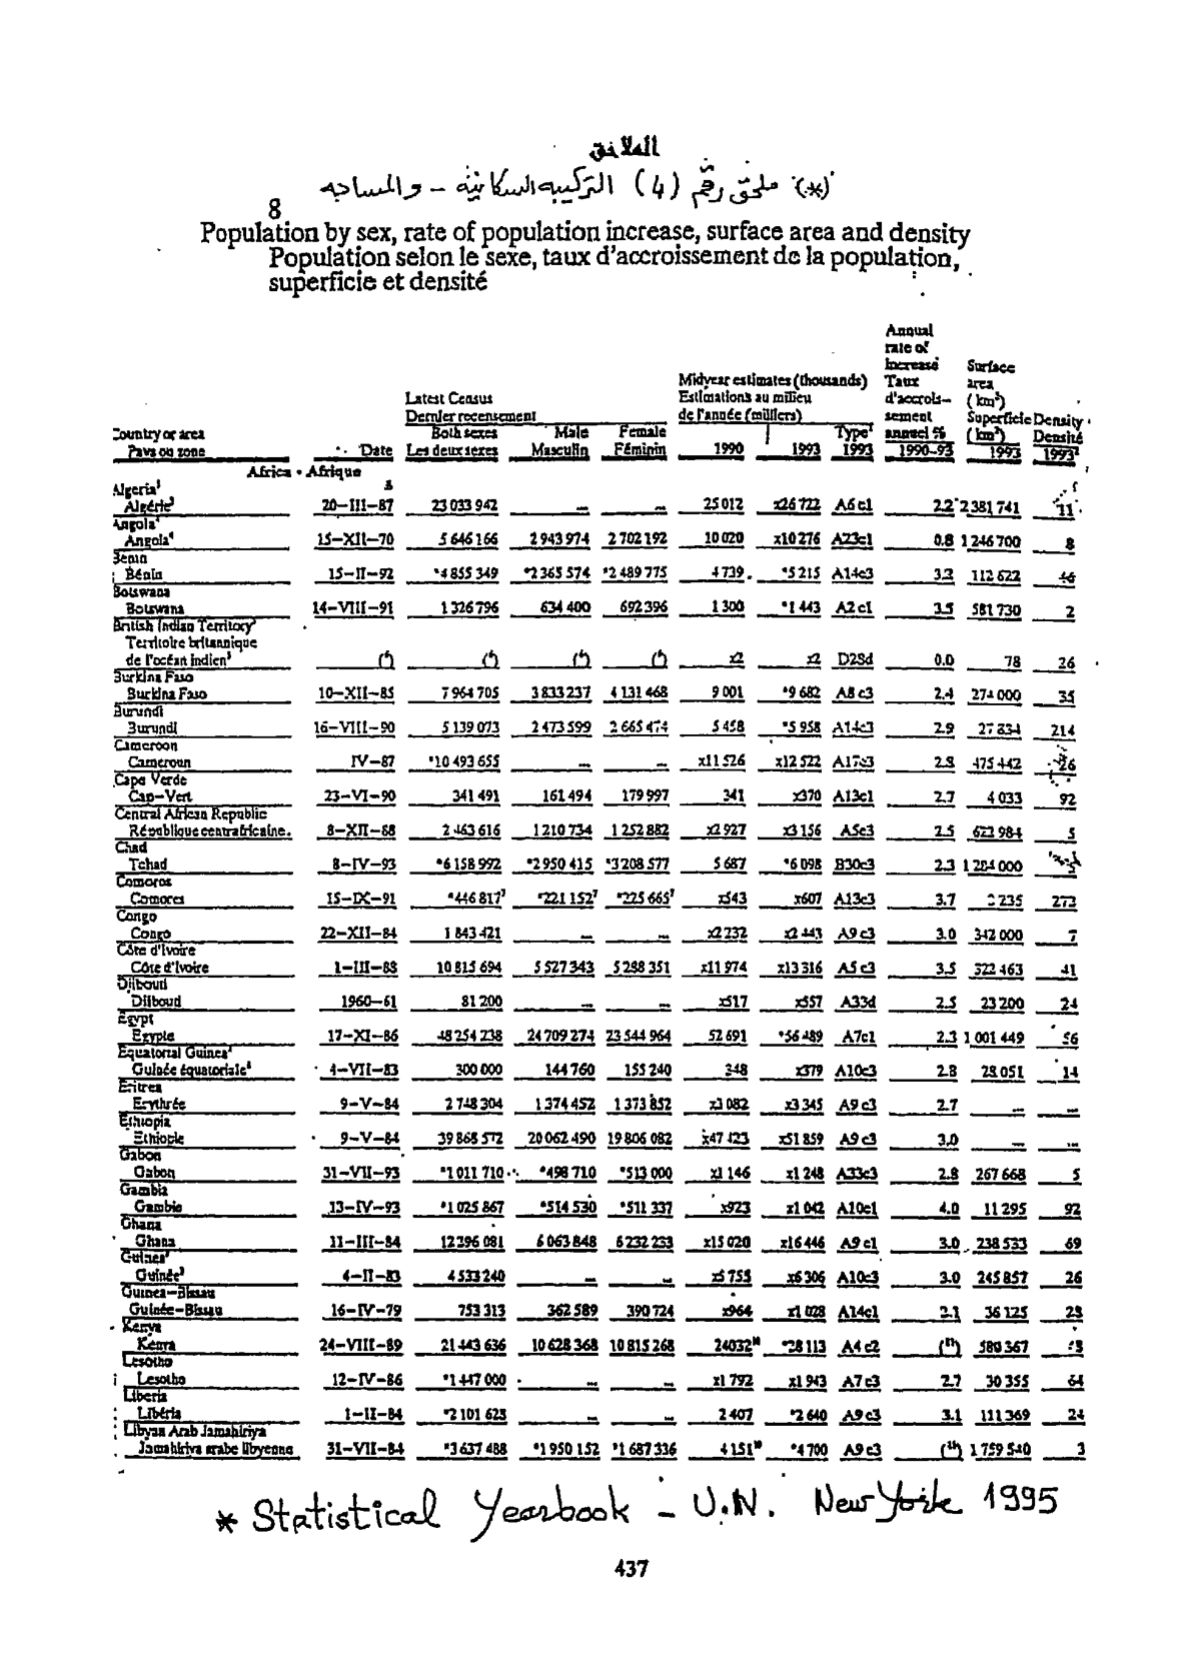 الملاحق
(*) ملحق رقم (4) التركيبه السكانية - والمساحه
8
Population by sex, rate of population increase, surface area and density
Population selon le sexe, taux d'accroissement de la population,
superficie et densité
Annual
rate of
increase Surface
Midyear estimates (thousands) Taux area
Latest Census Estimations au milieu d'accrois- (km²)
Dernier recensement de l'année (milliers) sement Superficie Density
Country or area Both sexes Male Female Type¹ annuel % (km²) Densité
Pays ou zone Date Les deux sexes Masculin Féminin 1990 1993 1993 1990–93 1993 1993²
Africa • Afrique
Algeria³
Algérie³ 20–III–87 23 033 942 ... ... 25 012 x26 722 A6 c1 2.2 2 381 741 11
Angola⁴
Angola⁴ 15–XII–70 5 646 166 2 943 974 2 702 192 10 020 x10 276 A23c1 0.8 1 246 700 8
Benin
Bénin 15–II–92 *4 855 349 *2 365 574 *2 489 775 4 739 *5 215 A14c3 3.2 112 622 46
Botswana
Botswana 14–VIII–91 1 326 796 634 400 692 396 1 300 *1 443 A2 c1 3.5 581 730 2
British Indian Territory
Territoire britannique
de l'océan Indien⁵ x2 x2 D28d 0.0 78 26
Burkina Faso
Burkina Faso 10–XII–85 7 964 705 3 833 237 4 131 468 9 001 *9 682 A8 c3 2.4 274 000 35
Burundi
Burundi 16–VIII–90 5 139 073 2 473 599 2 665 474 5 458 *5 958 A14c3 2.9 27 834 214
Cameroon
Cameroun IV–87 *10 493 655 ... ... x11 526 x12 522 A17c3 2.8 475 442 26
Cape Verde
Cap–Vert 23–VI–90 341 491 161 494 179 997 341 x370 A13c1 2.7 4 033 92
Central African Republic
République centrafricaine. 8–XII–88 2 463 616 1 210 734 1 252 882 x2 927 x3 156 A5c3 2.5 622 984 5
Chad
Tchad 8–IV–93 *6 158 992 *2 950 415 *3 208 577 5 687 *6 098 B30c3 2.3 1 284 000 5
Comoros
Comores 15–IX–91 *446 817⁷ *221 152⁷ *225 665⁷ x543 x607 A13c3 3.7 2 235 272
Congo
Congo 22–XII–84 1 843 421 ... ... x2 232 x2 443 A9 c3 3.0 342 000 7
Côte d'Ivoire
Côte d'Ivoire 1–III–88 10 815 694 5 527 343 5 288 351 x11 974 x13 316 A5 c3 3.5 322 463 41
Djibouti
Djibouti 1960–61 81 200 ... ... x517 x557 A33d 2.5 23 200 24
Egypt
Egypte 17–XI–86 48 254 238 24 709 274 23 544 964 52 691 *56 489 A7c1 2.3 1 001 449 56
Equatorial Guinea⁸
Guinée équatoriale⁸ 4–VII–83 300 000 144 760 155 240 348 x379 A10c3 2.8 28 051 14
Eritrea
Erythrée 9–V–84 2 748 304 1 374 452 1 373 852 x3 082 x3 345 A9 c3 2.7 ... ...
Ethiopia
Ethiopie 9–V–84 39 868 572 20 062 490 19 806 082 x47 423 x51 859 A9 c3 3.0 ... ...
Gabon
Gabon 31–VII–93 *1 011 710 *498 710 *513 000 x1 146 x1 248 A33c3 2.8 267 668 5
Gambia
Gambie 13–IV–93 *1 025 867 *514 530 *511 337 x923 x1 042 A10c1 4.0 11 295 92
Ghana
Ghana 11–III–84 12 296 081 6 063 848 6 232 233 x15 020 x16 446 A9 c1 3.0 238 533 69
Guinea³
Guinée³ 4–II–83 4 533 240 ... ... x5 755 x6 306 A10c3 3.0 245 857 26
Guinea–Bissau
Guinée–Bissau 16–IV–79 753 313 362 589 390 724 x964 x1 028 A14c1 2.1 36 125 28
Kenya
Kenya 24–VIII–89 21 443 636 10 628 368 10 815 268 24032 *28 113 A4 c2 580 367
Lesotho
Lesotho 12–IV–86 *1 447 000 ... ... x1 792 x1 943 A7 c3 2.7 30 355 64
Liberia
Libéria 1–II–84 *2 101 628 ... ... 2 407 *2 640 A9 c3 3.1 111 369 24
Libyan Arab Jamahiriya
Jamahiriya arabe libyenne 31–VII–84 *3 637 488 *1 950 152 *1 687 336 4 151 *4 700 A9 c3 1 759 540 3
* Statistical Yearbook - U.N. New York 1995
437